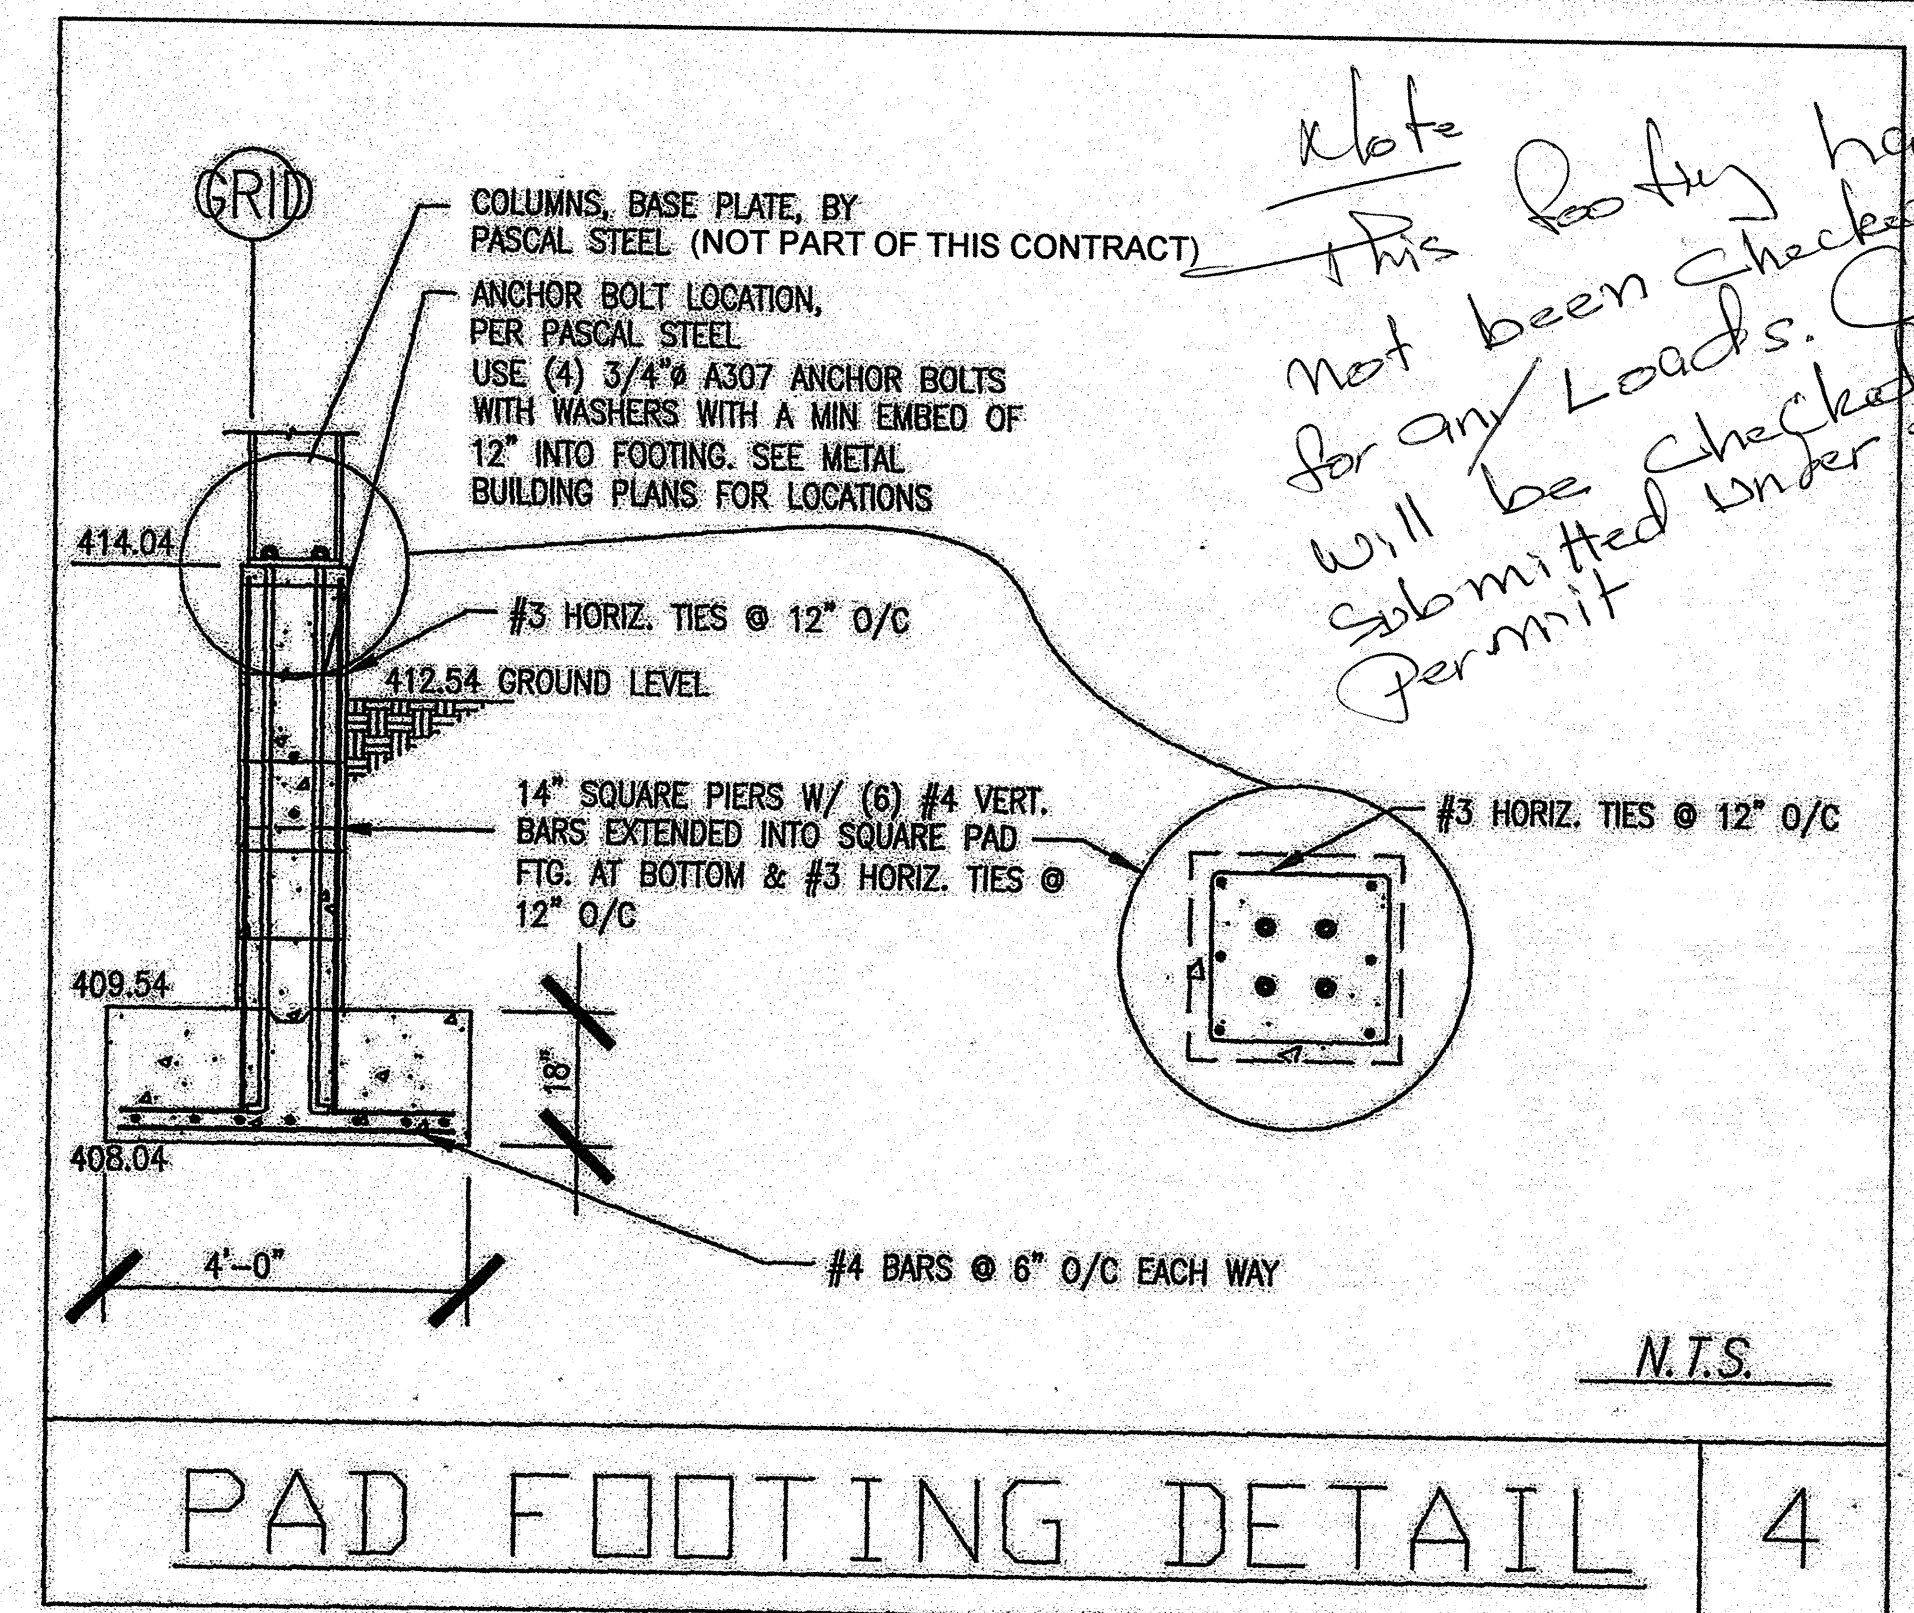 GRID
COLUMNS, BASE PLATE, BY
PASCAL STEEL (NOT PART OF THIS CONTRACT)
ANCHOR BOLT LOCATION,
PER PASCAL STEEL
USE (4) 3/4"ø A307 ANCHOR BOLTS
WITH WASHERS WITH A MIN EMBED OF
12" INTO FOOTING. SEE METAL
BUILDING PLANS FOR LOCATIONS
Note
This footing ha
not been checke
for any Loads.
will be checked
Submitted under
Permit
414.04
#3 HORIZ. TIES @ 12" O/C
412.54 GROUND LEVEL
14" SQUARE PIERS W/ (6) #4 VERT.
BARS EXTENDED INTO SQUARE PAD
FTG. AT BOTTOM & #3 HORIZ. TIES @
12" O/C
#3 HORIZ. TIES @ 12" O/C
409.54
18"
408.04
4'-0"
#4 BARS @ 6" O/C EACH WAY
N.T.S.
PAD FOOTING DETAIL
4